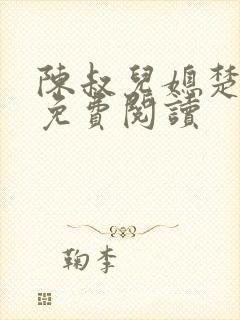 陳叔兒媳楚
免費閱讀
鞠李